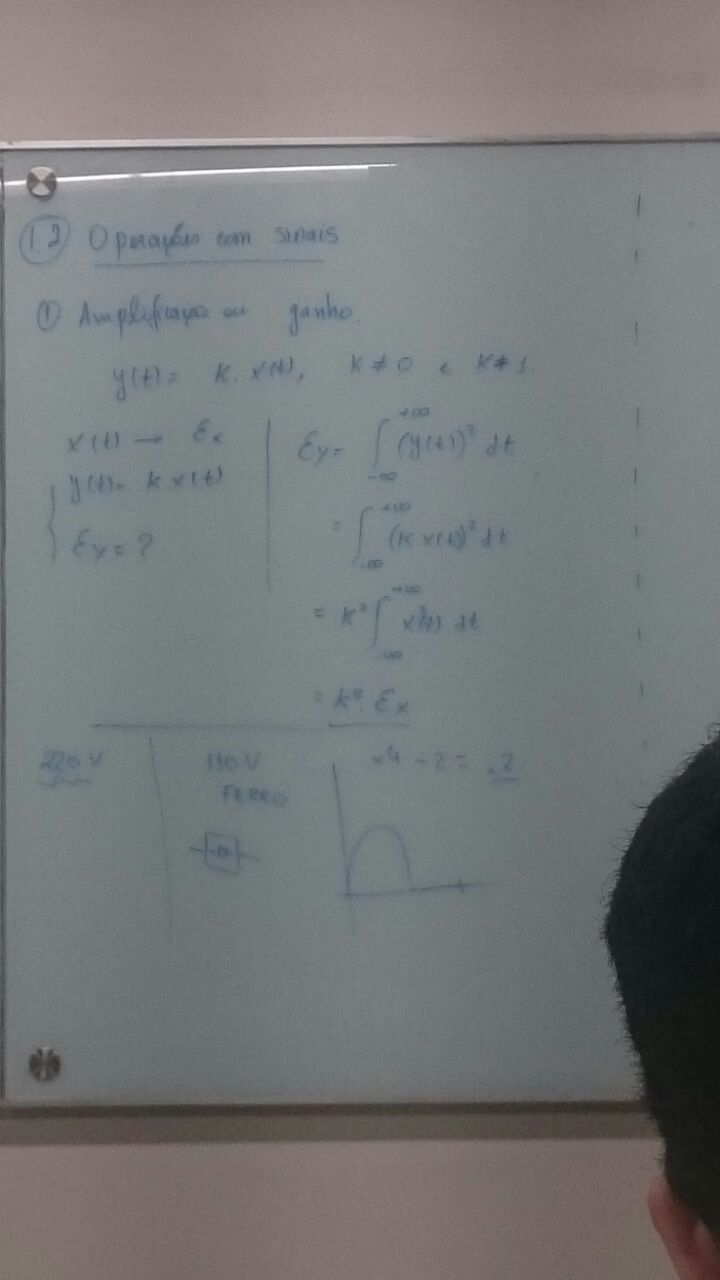 1.2 Operações com sinais
① Amplificação ou ganho.
y(t) = K. x(t), K ≠ 0 e K ≠ 1.
x(t) → Ex
y(t) = K x(t)
Ey = ?
Ey = ∫_{-∞}^{+∞} (y(t))² dt
= ∫_{-∞}^{+∞} (K x(t))² dt
= K² ∫_{-∞}^{+∞} x²(t) dt
= K². Ex
220 V
110 V
FERRO
4 - 2 = 2